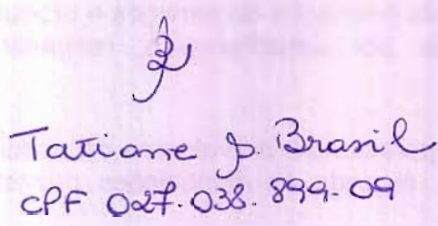 Tatiane p. Brasil
CPF 027.038.899-09